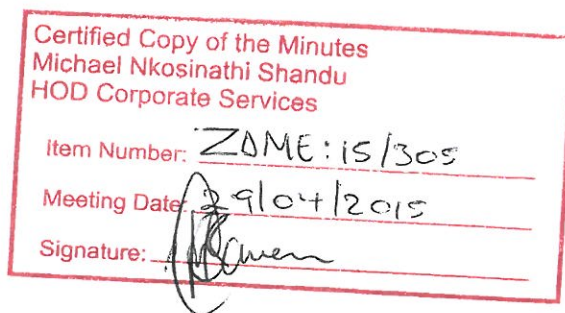 Certified Copy of the Minutes
Michael Nkosinathi Shandu
HOD Corporate Services
Item Number: ZDME:15/305
Meeting Date: 29/04/2015
Signature: